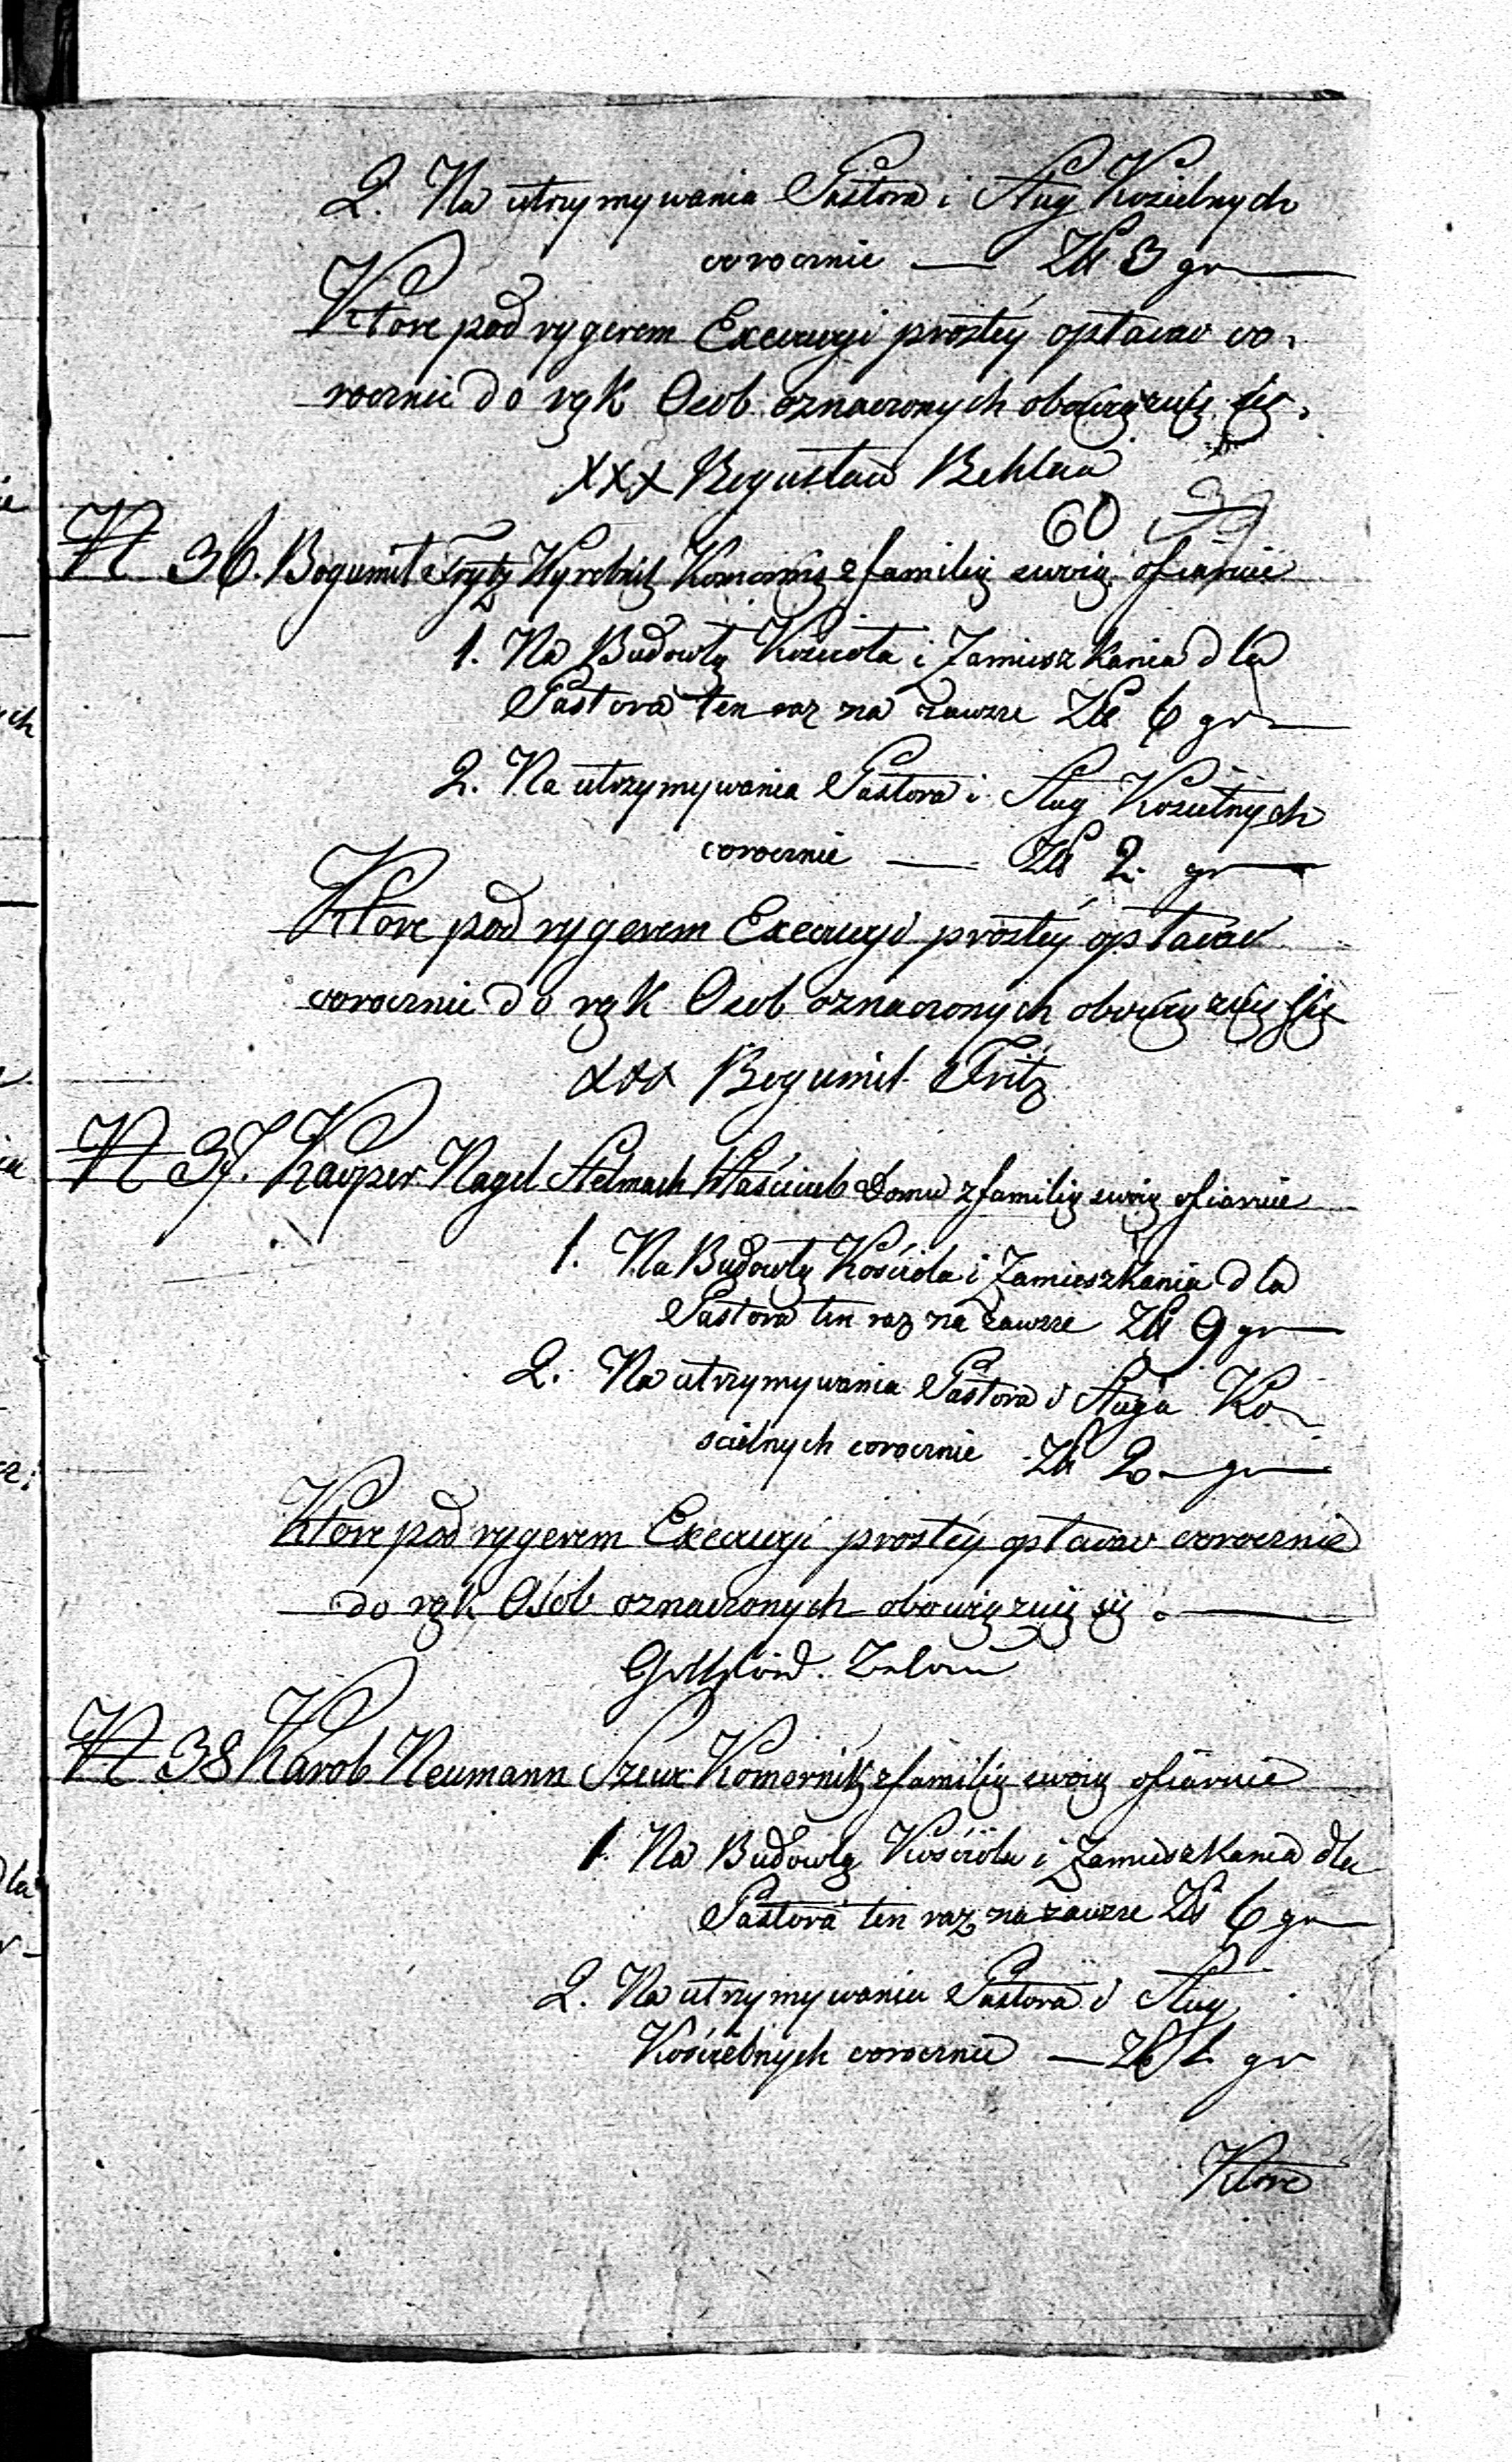 2. Na utrzymywania Pastora i Sług Kozielnych
corocznie — Złl 3 gr —
Które pod rygorem Execucyi prostéy opłacac co-
rocznie do rąk Osob oznaczonych obowiązuię się.
XXX Bogusław Behlka
60
N 36. Bogumił Frytz Wyrobnik Komornik z familią swoią ofiaruie
1. Na Budowlą Kościoła i Zamieszkania dla
Pastora ten raz na zawsze Złl 6 gr —
2. Na utrzymywania Pastora i Sług Kościelnych
corocznie — Złl 2. gr —
Które pod rygorem Execucyi prostéy opłacac
corocznie do rąk Osob oznaczonych obowiązuię się
xxx Bogumił Fritz
N 37. Kacper Nagel Stelmach Właściciel Domu z familią swoią ofiaruie
1. Na Budowlą Kościoła i Zamieszkania dla
Pastora ten raz na zawsze Złl 9 gr —
2. Na utrzymywania Pastora i Sługa Ko-
scielnych corocznie Złl 2 — gr —
Które pod rygorem Execucyi prostéy opłacac corocznie
do rąk Osób oznaczonych obowiązuię się. —
N 38 Karol Neumann Szewc Komornik z familią swoią ofiaruie
1. Na Budowlą Kościoła i Zamieszkania dla
Pastora ten raz na zawsze Złl 6 gr —
2. Na utrzymywania Pastora i Sług
Kościelnych corocznie — Zł 1 gr
Które